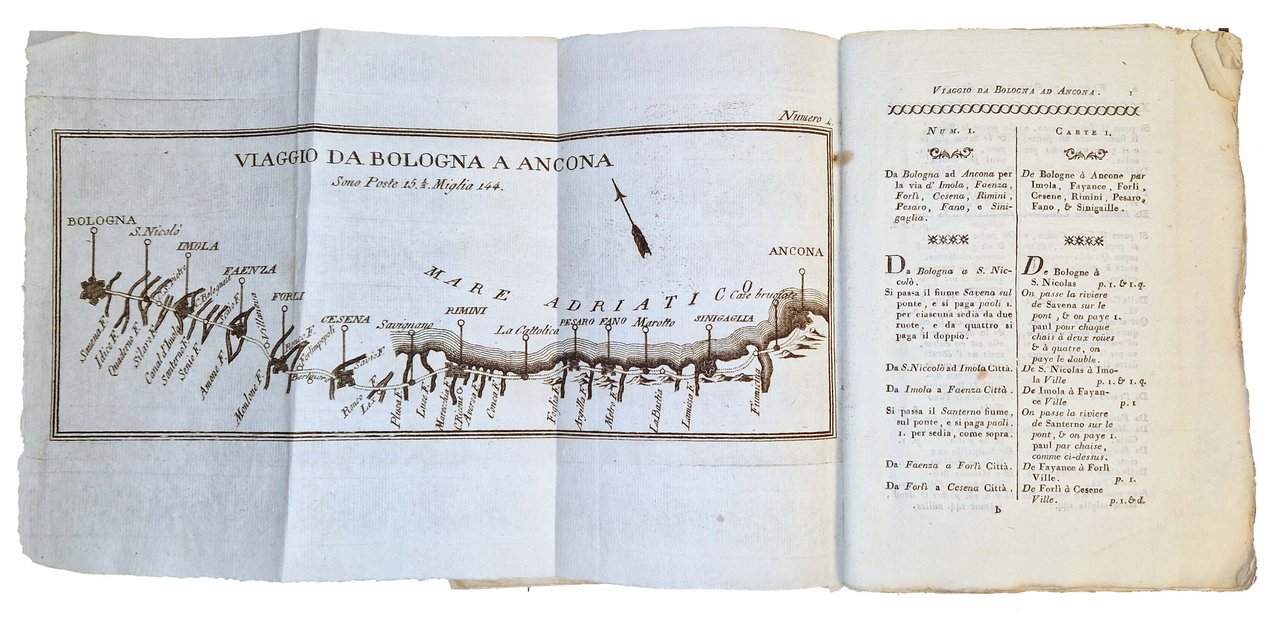 Numero 1.
VIAGGIO DA BOLOGNA A ANCONA
Sono Poste 15.½. Miglia 144.
BOLOGNA
S. Nicolò
IMOLA
FAENZA
FORLI
CESENA
Savignano
RIMINI
La Cattolica
PESARO
FANO
Marotto
SINIGAGLIA
Case bruciate
ANCONA
MARE ADRIATICO
Savona F.
Idice F.
Quaderna F.
Silaro F.
Santerno F.
Senio F.
Amone F.
Montone F.
Ronco
Savio F.
Plusa F.
Luso F.
Marecchia F.
Conca F.
Foglia F.
Argilla F.
Metro F.
Fiumi
VIAGGIO DA BOLOGNA AD ANCONA. 1
NUM. I.
Da Bologna ad Ancona per
la via d' Imola, Faenza,
Forlì, Cesena, Rimini,
Pesaro, Fano, e Sini-
gaglia.
Da Bologna a S. Nic-
colò.
Si passa il fiume Savena sul
ponte, e si paga paoli 1.
per ciascuna sedia da due
ruote, e da quattro si
paga il doppio.
Da S. Niccolò ad Imola Città.
Da Imola a Faenza Città.
Si passa il Santerno fiume,
sul ponte, e si paga paoli.
1. per sedia, come sopra.
Da Faenza a Forlì Città.
Da Forlì a Cesena Città.
CARTE I.
De Bologne à Ancone par
Imola, Fayance, Forlì,
Cesene, Rimini, Pesaro,
Fano, & Sinigaille.
De Bologne à
S. Nicolas p. 1. & 1. q.
On passe la riviere
de Savena sur le
pont, & on paye 1.
paul pour chaque
chais à deux roues
& à quatre, on
paye le double.
De S. Nicolas à Imo-
la Ville p. 1. & 1. q.
De Imola à Fayan-
ce Ville p. 1
On passe la riviere
de Santerno sur le
pont, & on paye 1.
paul par chaise,
comme ci-dessus.
De Fayance à Forlì
Ville. p. 1.
De Forlì à Cesene
Ville. p. 1. & d.
b